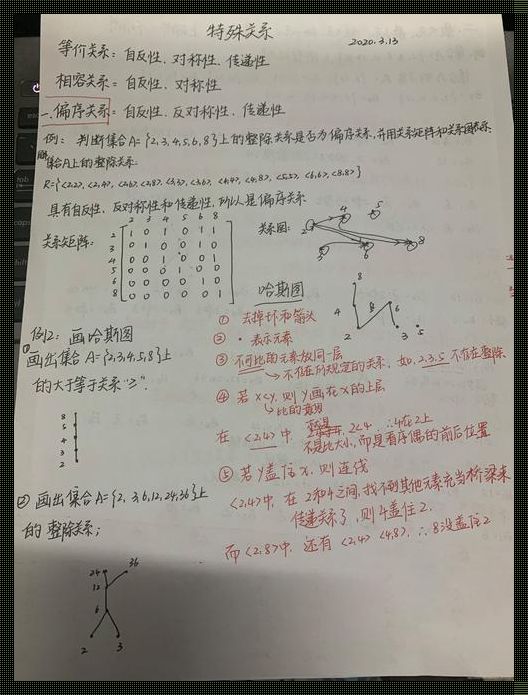 特殊关系
2020.3.13
等价关系: 自反性、对称性、传递性
相容关系: 自反性、对称性
一、偏序关系: 自反性、反对称性、传递性
例: 判断集合A={2,3,4,5,6,8}上的整除关系是否为偏序关系,并用关系矩阵和关系图表示
集合A上的整除关系
R={<2,2>,<2,4>,<2,6>,<2,8>,<3,3>,<3,6>,<4,4>,<4,8>,<5,5>,<6,6>,<8,8>}
具有自反性、反对称性和传递性,所以是偏序关系
关系矩阵:
2 3 4 5 6 8
2 1 0 1 0 1 1
3 0 1 0 0 1 0
4 0 0 1 0 0 1
5 0 0 0 1 0 0
6 0 0 0 0 1 0
8 0 0 0 0 0 1
关系图:
2 4 5 8 3 6
哈斯图
8
4 8 6
2 3 5
① 去掉环和箭头
② · 表示元素
③ 不可比的元素放同一层
→ 不存在所规定的关系, 如 2.3.5 不存在整除
④ 若 x<y, 则 y画在x的上层
在 <2,4> 中 2<4 ∴4在2上
不是比大小,而是看序偶的前后位置
⑤ 若y盖住x, 则连线
<2,4>中, 在2和4之间,找不到其他元素充当桥梁来
传递关系了, 则4盖住2.
而<2,8>中, 还有 <2,4> <4,8>, ∴8没盖住2
例2: 画哈斯图
①画出集合 A={2,3,4,5,8}上
的大于等于关系"≥".
8
5
4
3
2
② 画出集合A={2,3,6,12,24,36}上
的 整除关系;
24 36
12
6
2 3